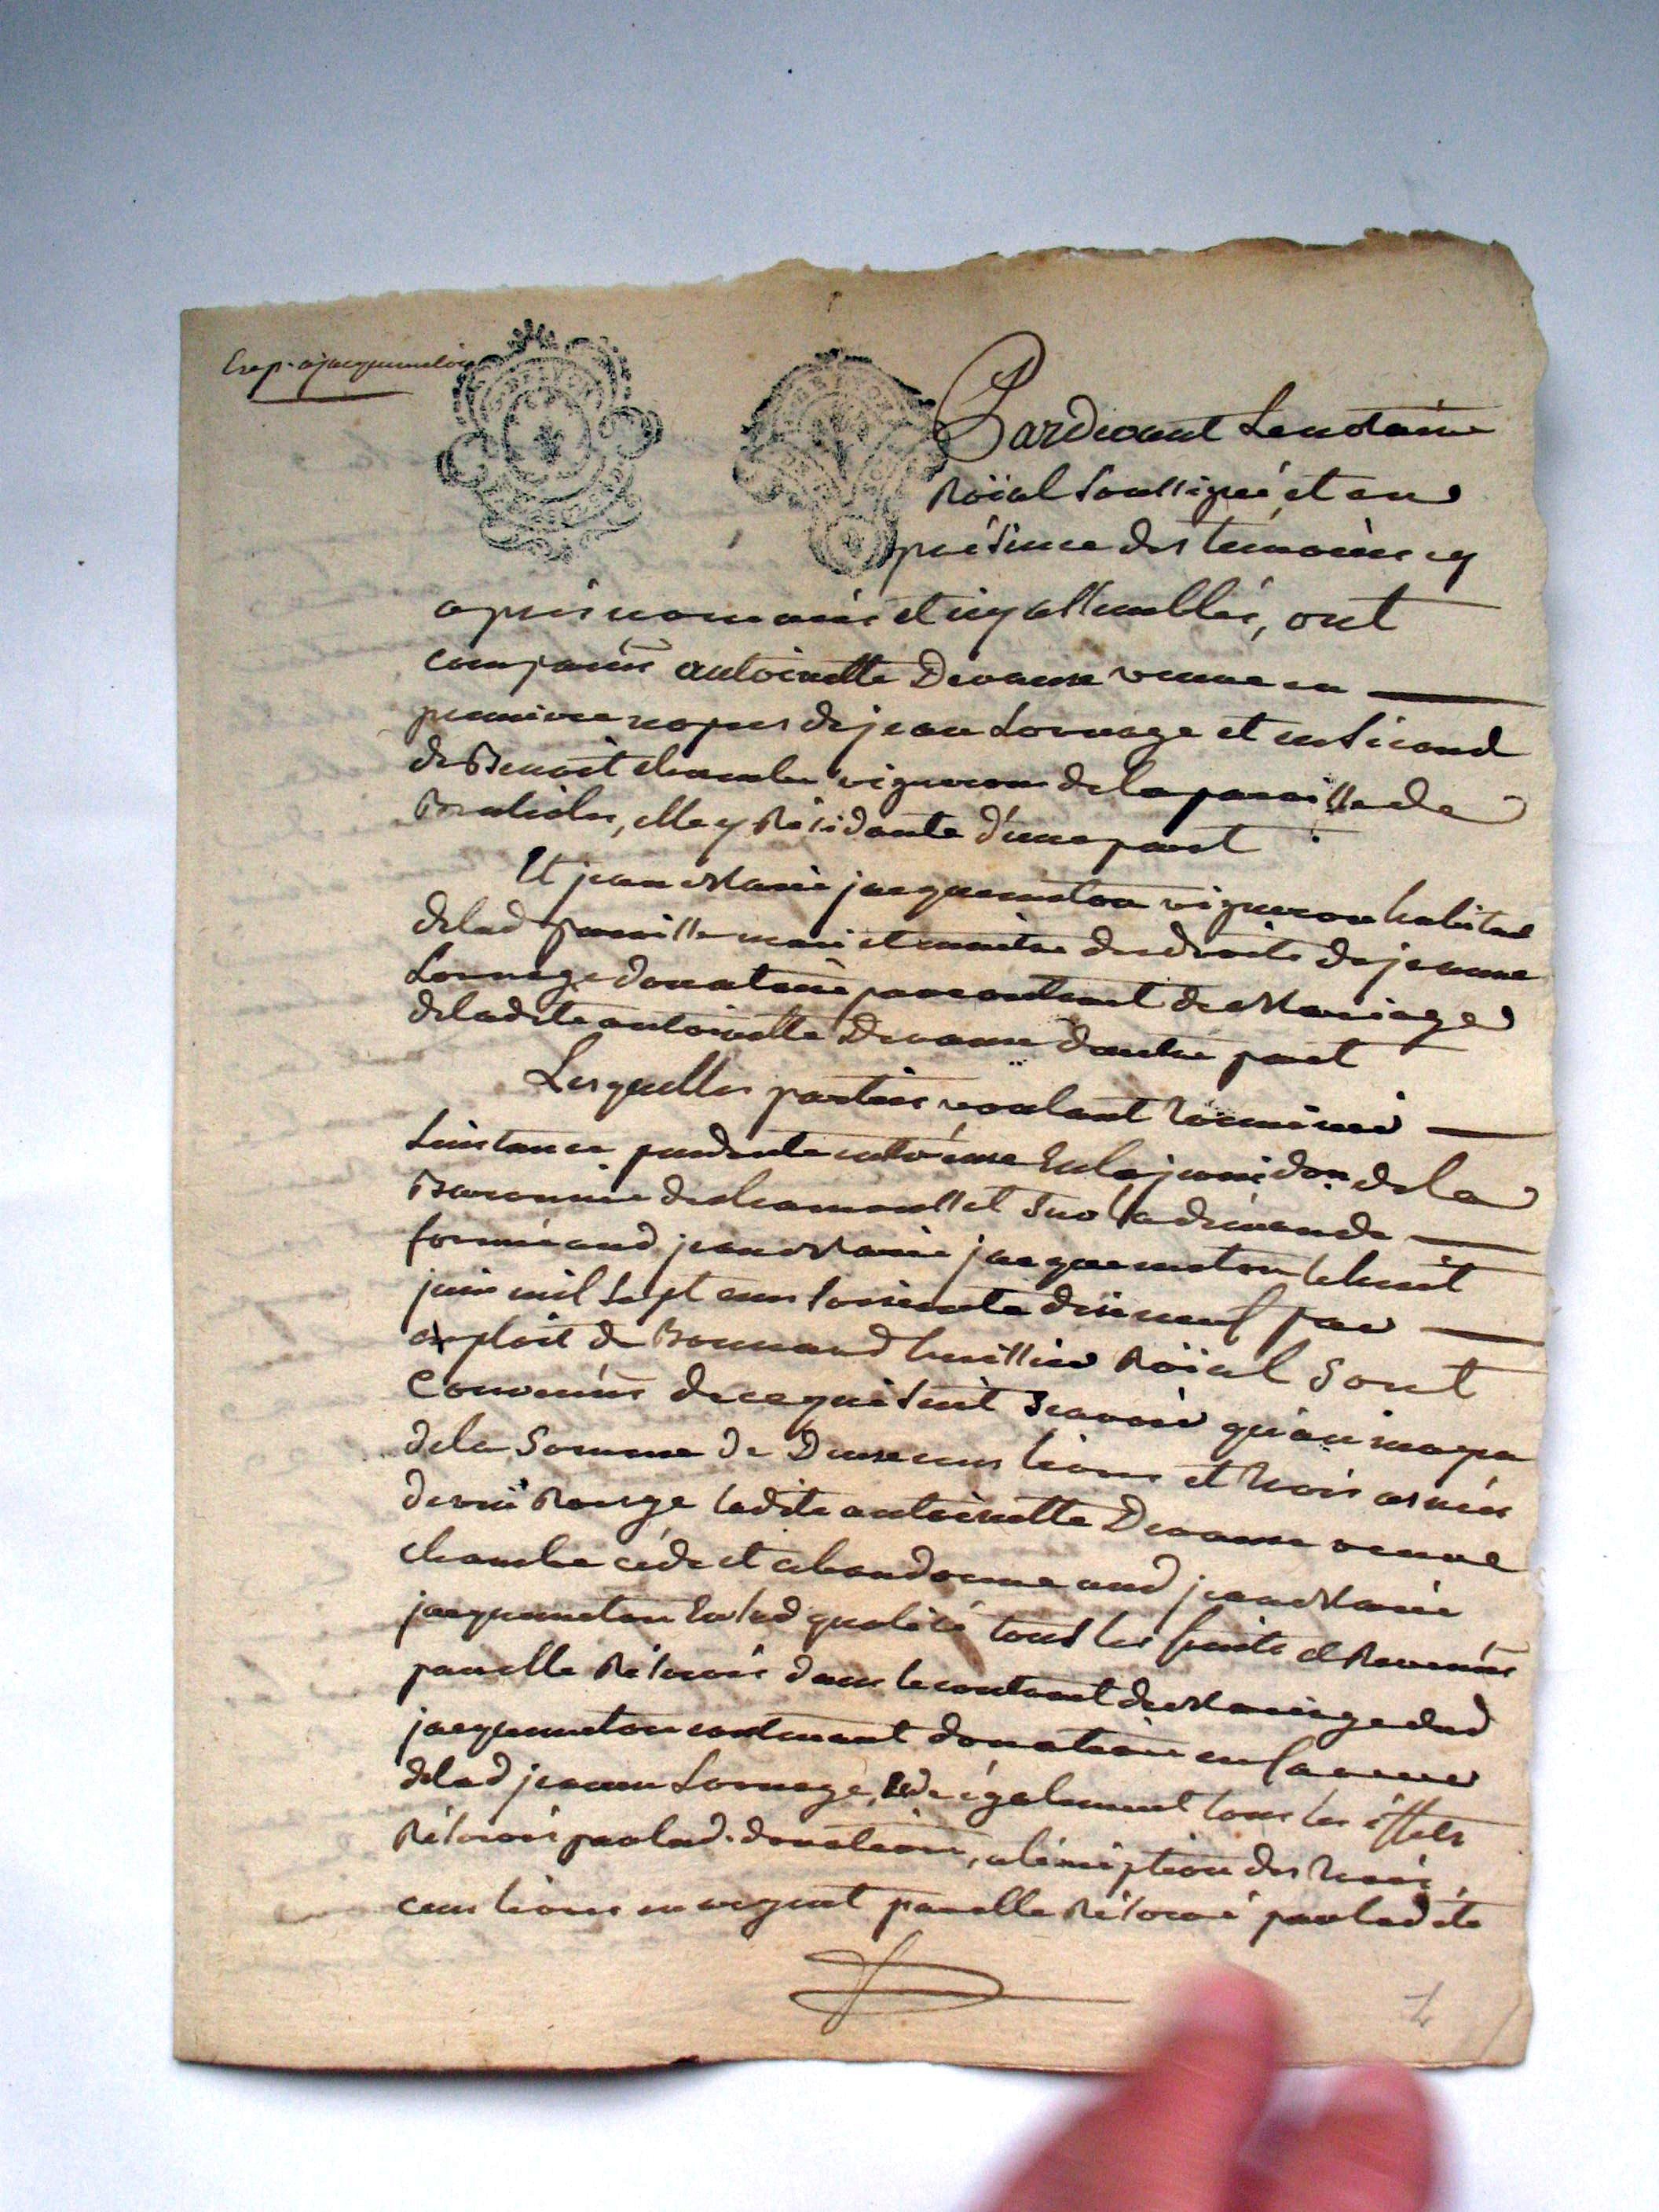 Exp. a jacquemeton
Pardevant Le notaire
Roïal soussigné, et en
présence des temoins cy
apres nommés et icy assemblés, ont
comparûs antoinette Devaux veuve en
premiere nopces de jean Lornage et en second
de Benoit chambe vigneron de la paroisse de
Brulioles, elle y Résidante d'une part
Et jean Marie jacquemeton vigneron habitant
de lad paroisse mari et maitre des droits de jeanne
Lornage donataire par contract de Mariage
de ladite antoinette Devaux d'autre part
Lesquelles parties voulant terminer
l'instance pendante entr'eux En la juridon de la
Baronnie de chamousset sur la demande
formée aud jean Marie jacquemeton le huit
juin mil sept cens soixante dixneuf par
exploit de Bonnard huissier Roïal sont
convenûs de ce qui suit scavoir qu'au moyen
de la somme de Deux cens livres et trois asnées
de vin Rouge ladite antoinette Devaux veuve
chambe cède et abandonne aud jean Marie
jacquemeton En lad qualité tous les fruits et Revenûs
par elle Réservés dans le contract de Mariage dud
jacquemeton contenant donation en faveur
de lad jeanne Lornage, cède également tous les effets
Réservés par lad. donation, a l'exception des trois
cens livres en argent par elle Réservé par ladite